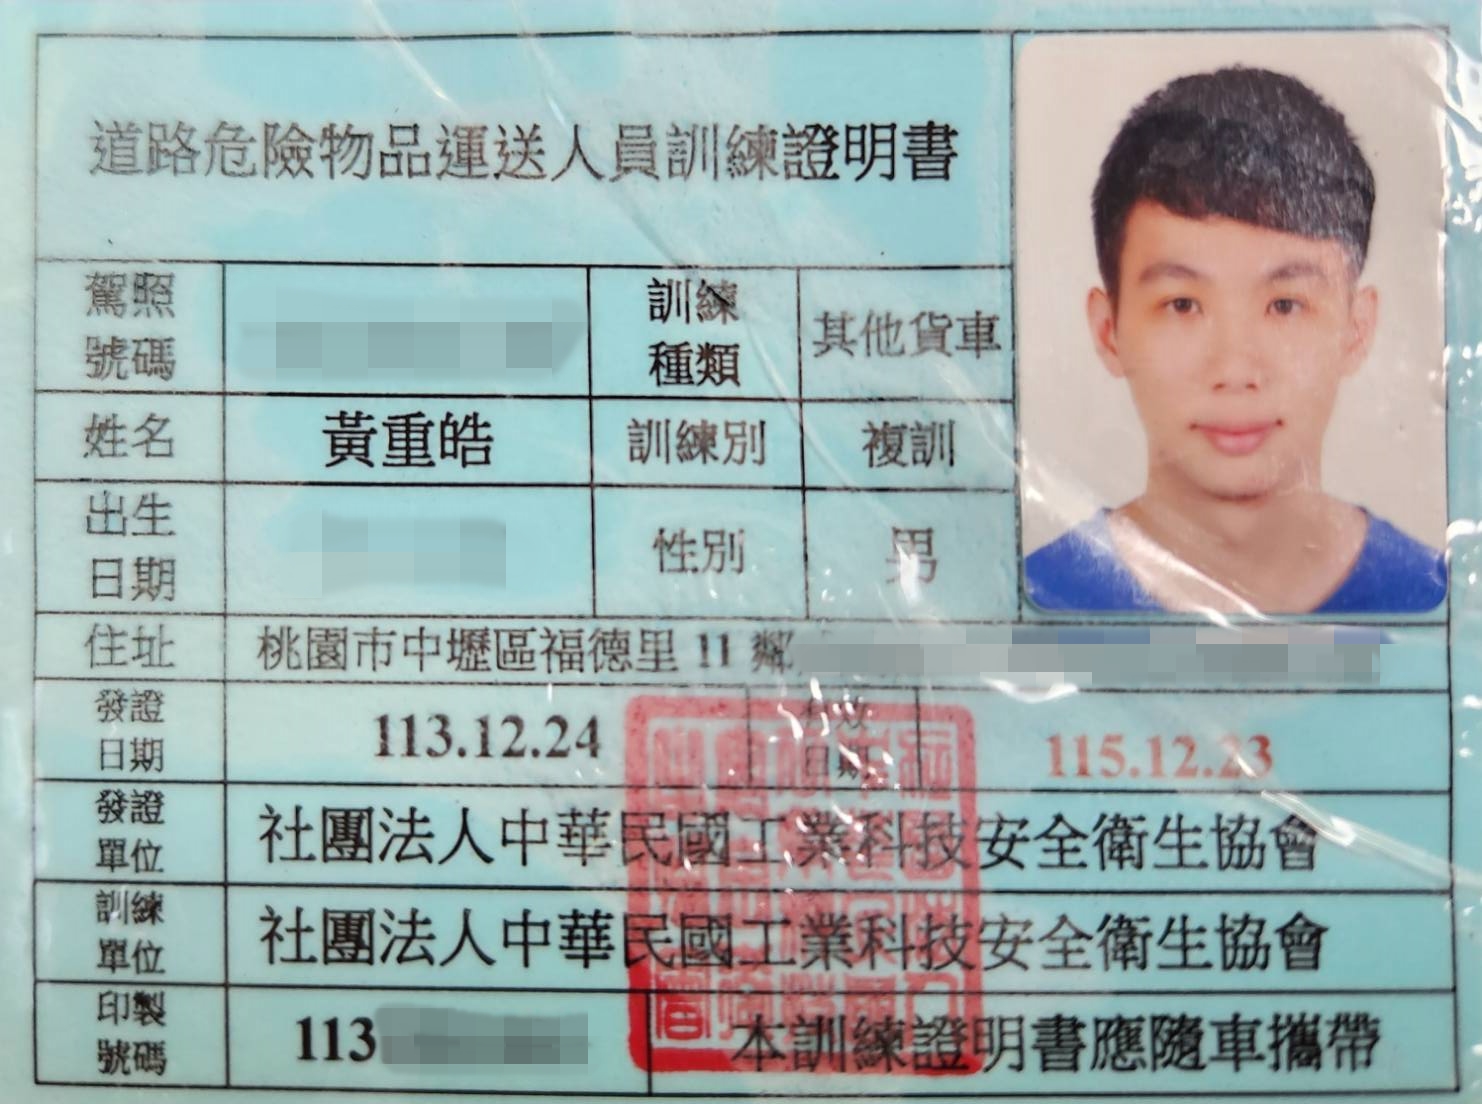 道路危險物品運送人員訓練證明書
駕照號碼
訓練種類 其他貨車
姓名 黃重皓 訓練別 複訓
出生日期 性別 男
住址 桃園市中壢區福德里 11 鄰
發證日期 113.12.24 有效日期 115.12.23
發證單位 社團法人中華民國工業科技安全衛生協會
訓練單位 社團法人中華民國工業科技安全衛生協會
印製號碼 113 本訓練證明書應隨車攜帶